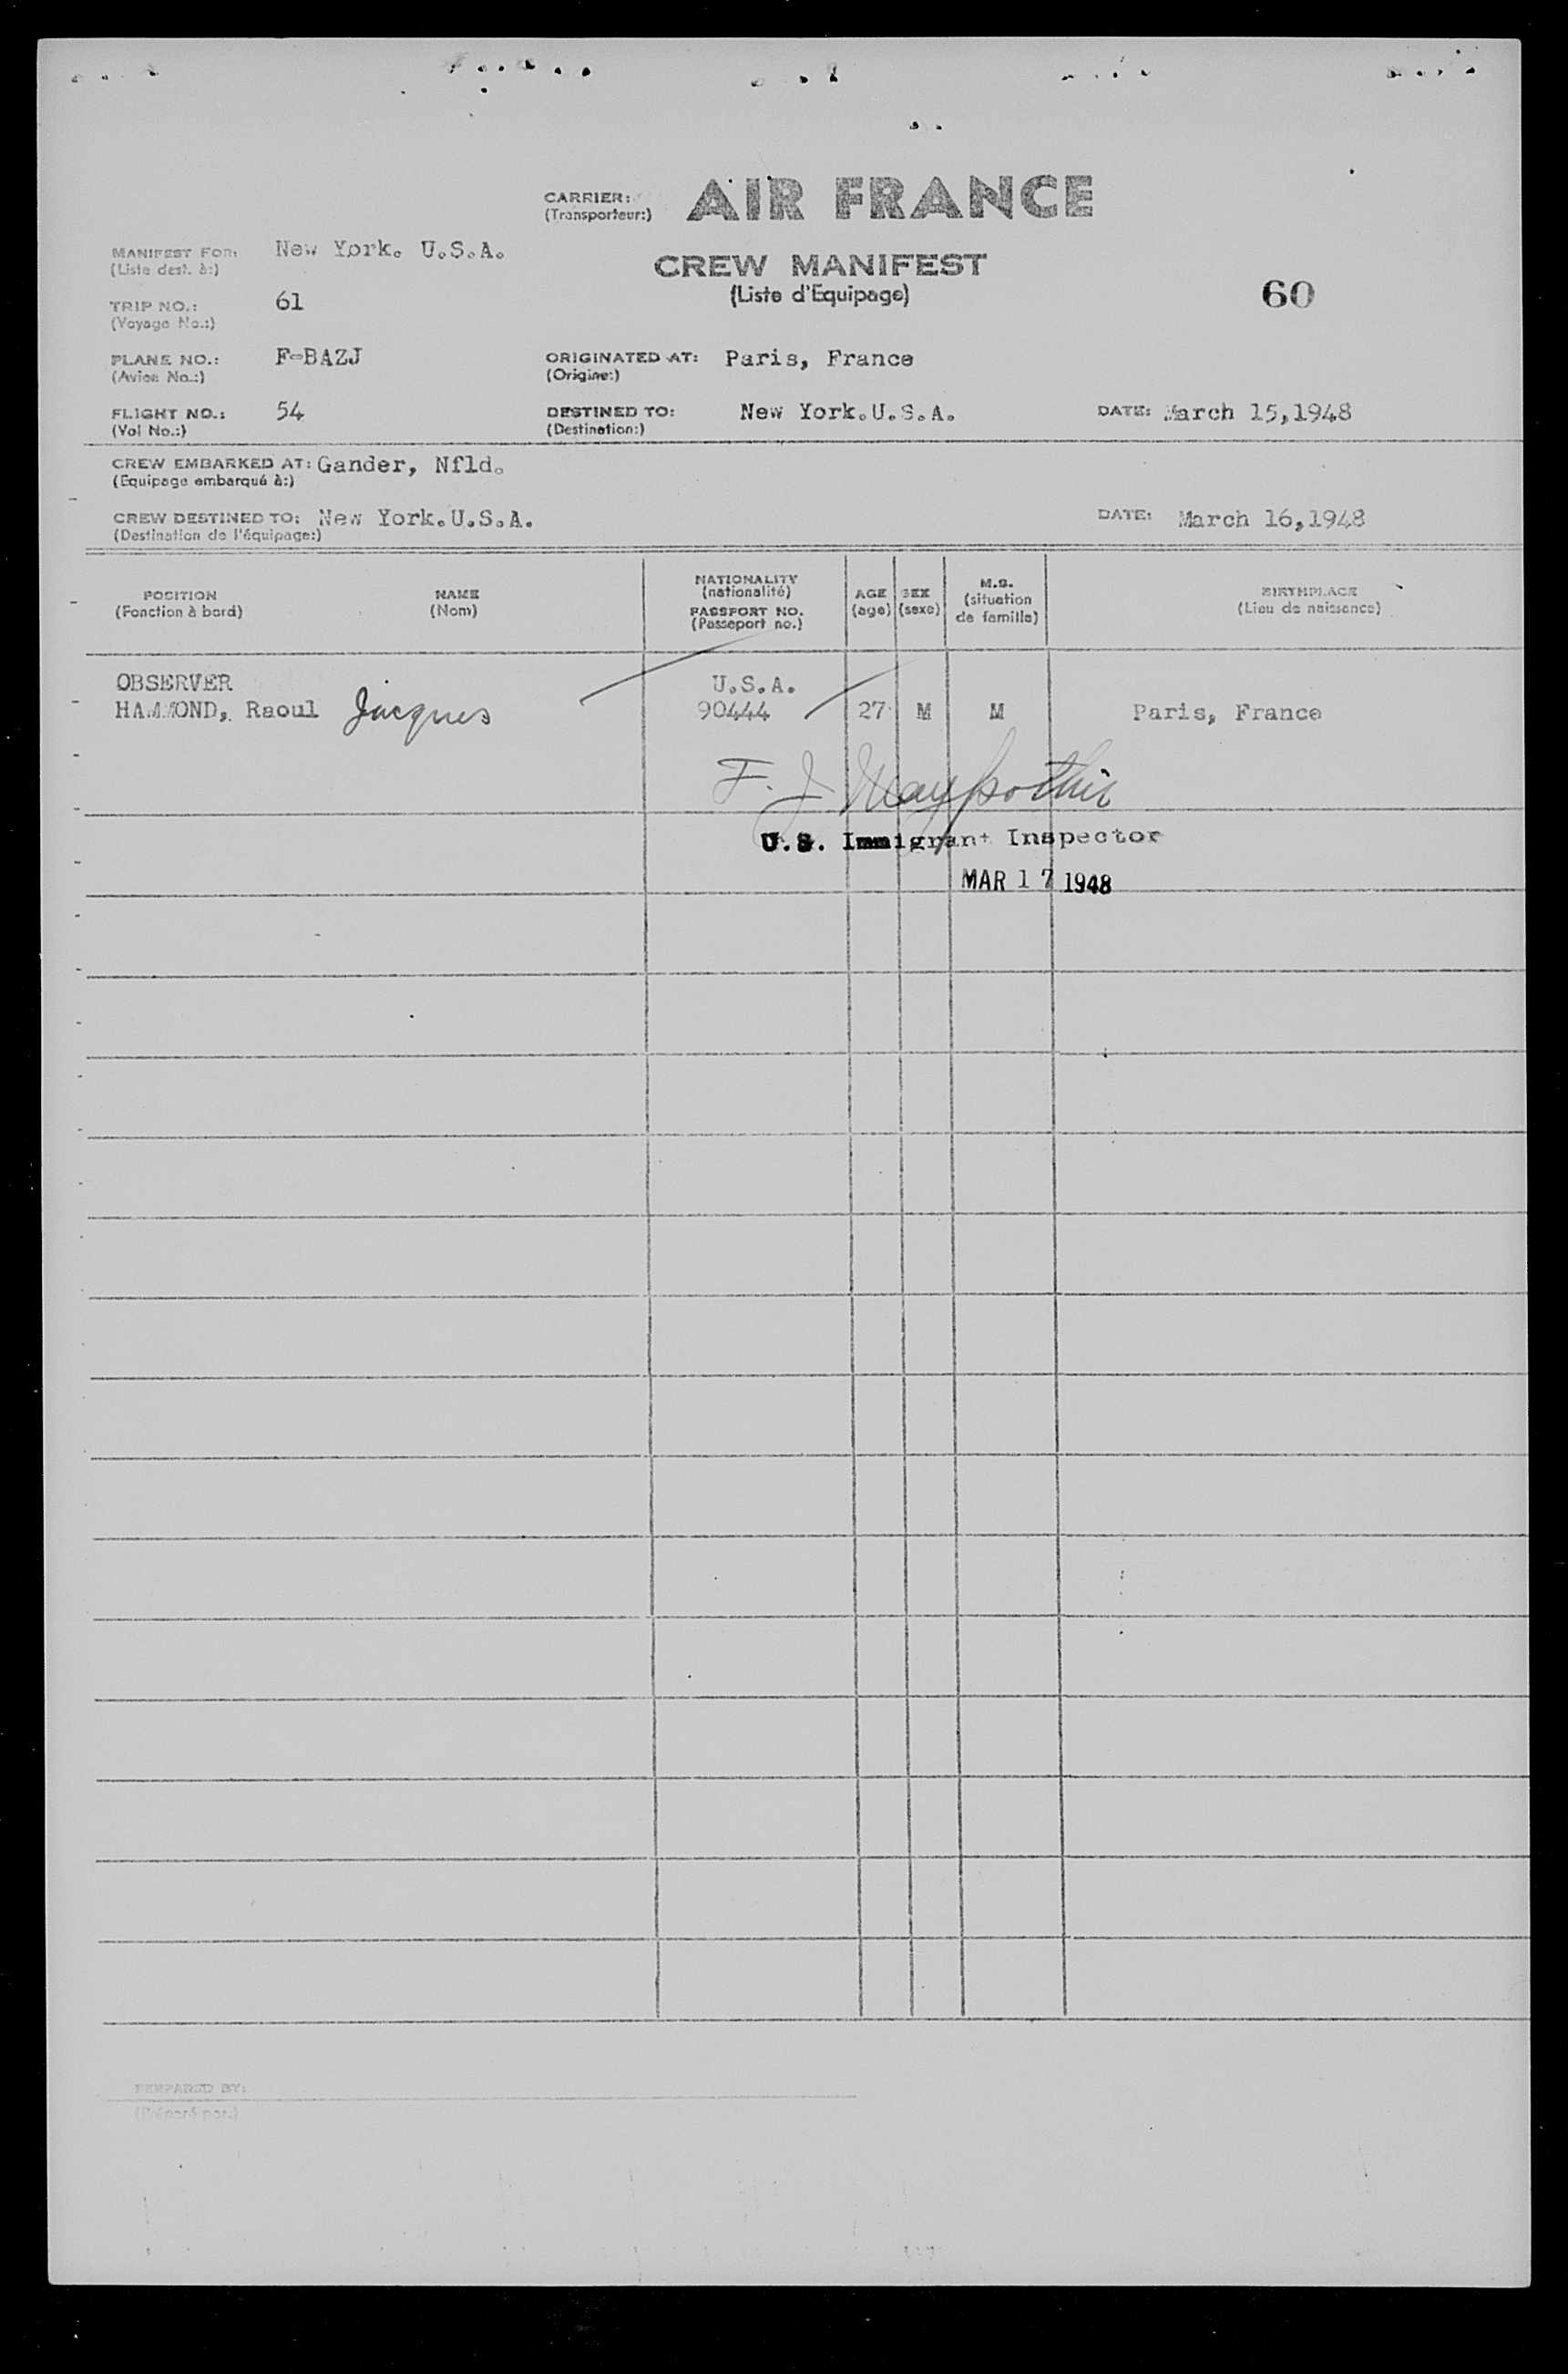 CARRIER: AIR FRANCE
(Transporteur:)
MANIFEST FOR: New York. U.S.A.
(Liste dest. à:)
CREW MANIFEST
(Liste d'Equipage)
60
TRIP NO.: 61
(Voyage No.:)
PLANE NO.: F-BAZJ
(Avion No.:)
ORIGINATED AT: Paris, France
(Origine:)
FLIGHT NO.: 54
(Vol No.:)
DESTINED TO: New York.U.S.A.
(Destination:)
DATE: March 15,1948
CREW EMBARKED AT: Gander, Nfld.
(Equipage embarqué à:)
CREW DESTINED TO: New York.U.S.A.
(Destination de l'équipage:)
DATE: March 16,1948
POSITION
(Fonction à bord)
NAME
(Nom)
NATIONALITY
(nationalité)
PASSPORT NO.
(Passeport no.)
AGE
(age)
SEX
(sexe)
M.S.
(situation
de famille)
BIRTHPLACE
(Lieu de naissance)
OBSERVER U.S.A.
HAMMOND, Raoul Jacques 90444 27 M M Paris, France
F. J.
U.S. Immigrant Inspector
MAR 17 1948
PREPARED BY:
(Préparé par:)